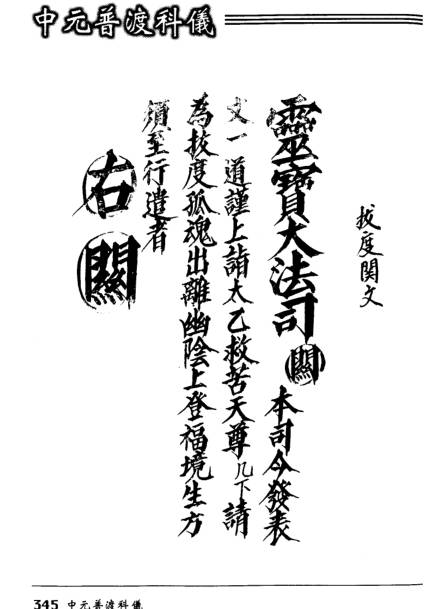 中元普渡科儀
拔度関文
靈寶大法司 關 本司今發表
文一道謹上詣太乙救苦天尊几下請
為拔度孤魂出離幽陰上登福境生方
須至行遣者
右關
345 中元普渡科儀